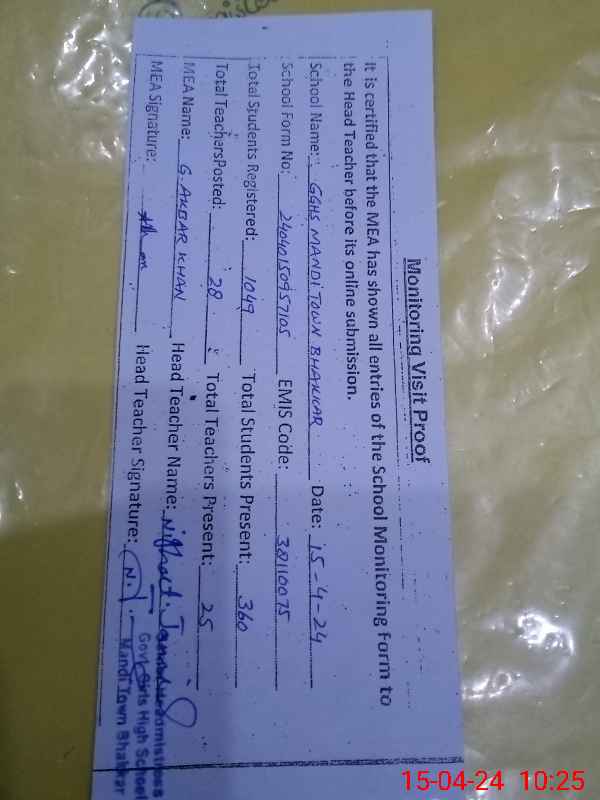 Monitoring Visit Proof
It is certified that the MEA has shown all entries of the School Monitoring form to
the Head Teacher before its online submission.
School Name: GGHS MANDI TOWN BHAKKAR Date: 15-4-24
School Form No: 24040150957105 EMIS Code: 38110075
Total Students Registered: 1049 Total Students Present: 360
Total Teachers Posted: 28 Total Teachers Present: 25
MEA Name: G. AKBAR KHAN Head Teacher Name:
MEA Signature: Head Teacher Signature: N.J
Govt Girls High School
Mandi Town Bhakkar
15-04-24 10:25